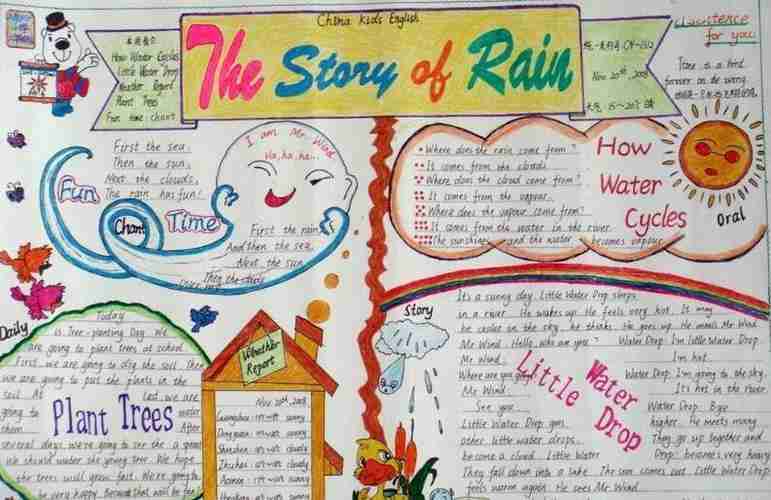 China Kids English
The Story of Rain
How Water Cycles
Little Water Drop
Weather Report
Plant Trees
Fun time chant
Nov 20th, 2008
Sentence
for you
Time is a bird
forever on the wing.
First the sea,
Then the sun,
Next the clouds,
The rain has fun!
Fun
Chant
Time
I am Mr Wind
Ha, ha, ha...
First the rain
And then the sea,
Next the sun
Then the
Where does the rain come from?
It comes from the clouds.
Where does the cloud come from?
It comes from the vapour.
Where does the vapour come from?
It comes from the water in the river.
The sunshine and the water becomes vapour
How
Water
Cycles
Oral
Daily
Today
is Tree-planting Day. We
are going to plant trees at school.
First, we are going to dig the soil. Then
we are going to put the plants in the
soil. At Last we are
going to water
them After
several days, we're going to see the a green
We should water the young tree. We hope
the trees will grow fast. We're going to
be very happy. Because that will be
Plant Trees
Weather
Report
Nov. 20th, 2008
Guangzhou sunny
Dongguan sunny
Shenzhen cloudy
Zhuhai cloudy
sunny
sunny
Story
It's a sunny day. Little Water Drop sleeps
in a river. He wakes up. He feels very hot. It may
be cooler in the sky, he thinks. He goes up. He meets Mr Wind.
Mr Wind: Hello, who are you? Water Drop: I'm Little Water Drop.
Mr Wind: I'm hot.
Where are you going? Water Drop: I'm going to the sky.
Mr Wind: It's hot in the river.
See you. Water Drop: Bye
Little Water Drop goes higher. He meets many
other little water drops. They go up together and
become a cloud. Little Water Drop becomes very heavy
They fall down into a lake. The sun comes out. Little Water Drop
feels warm again. He sees Mr Wind
Little
Water
Drop